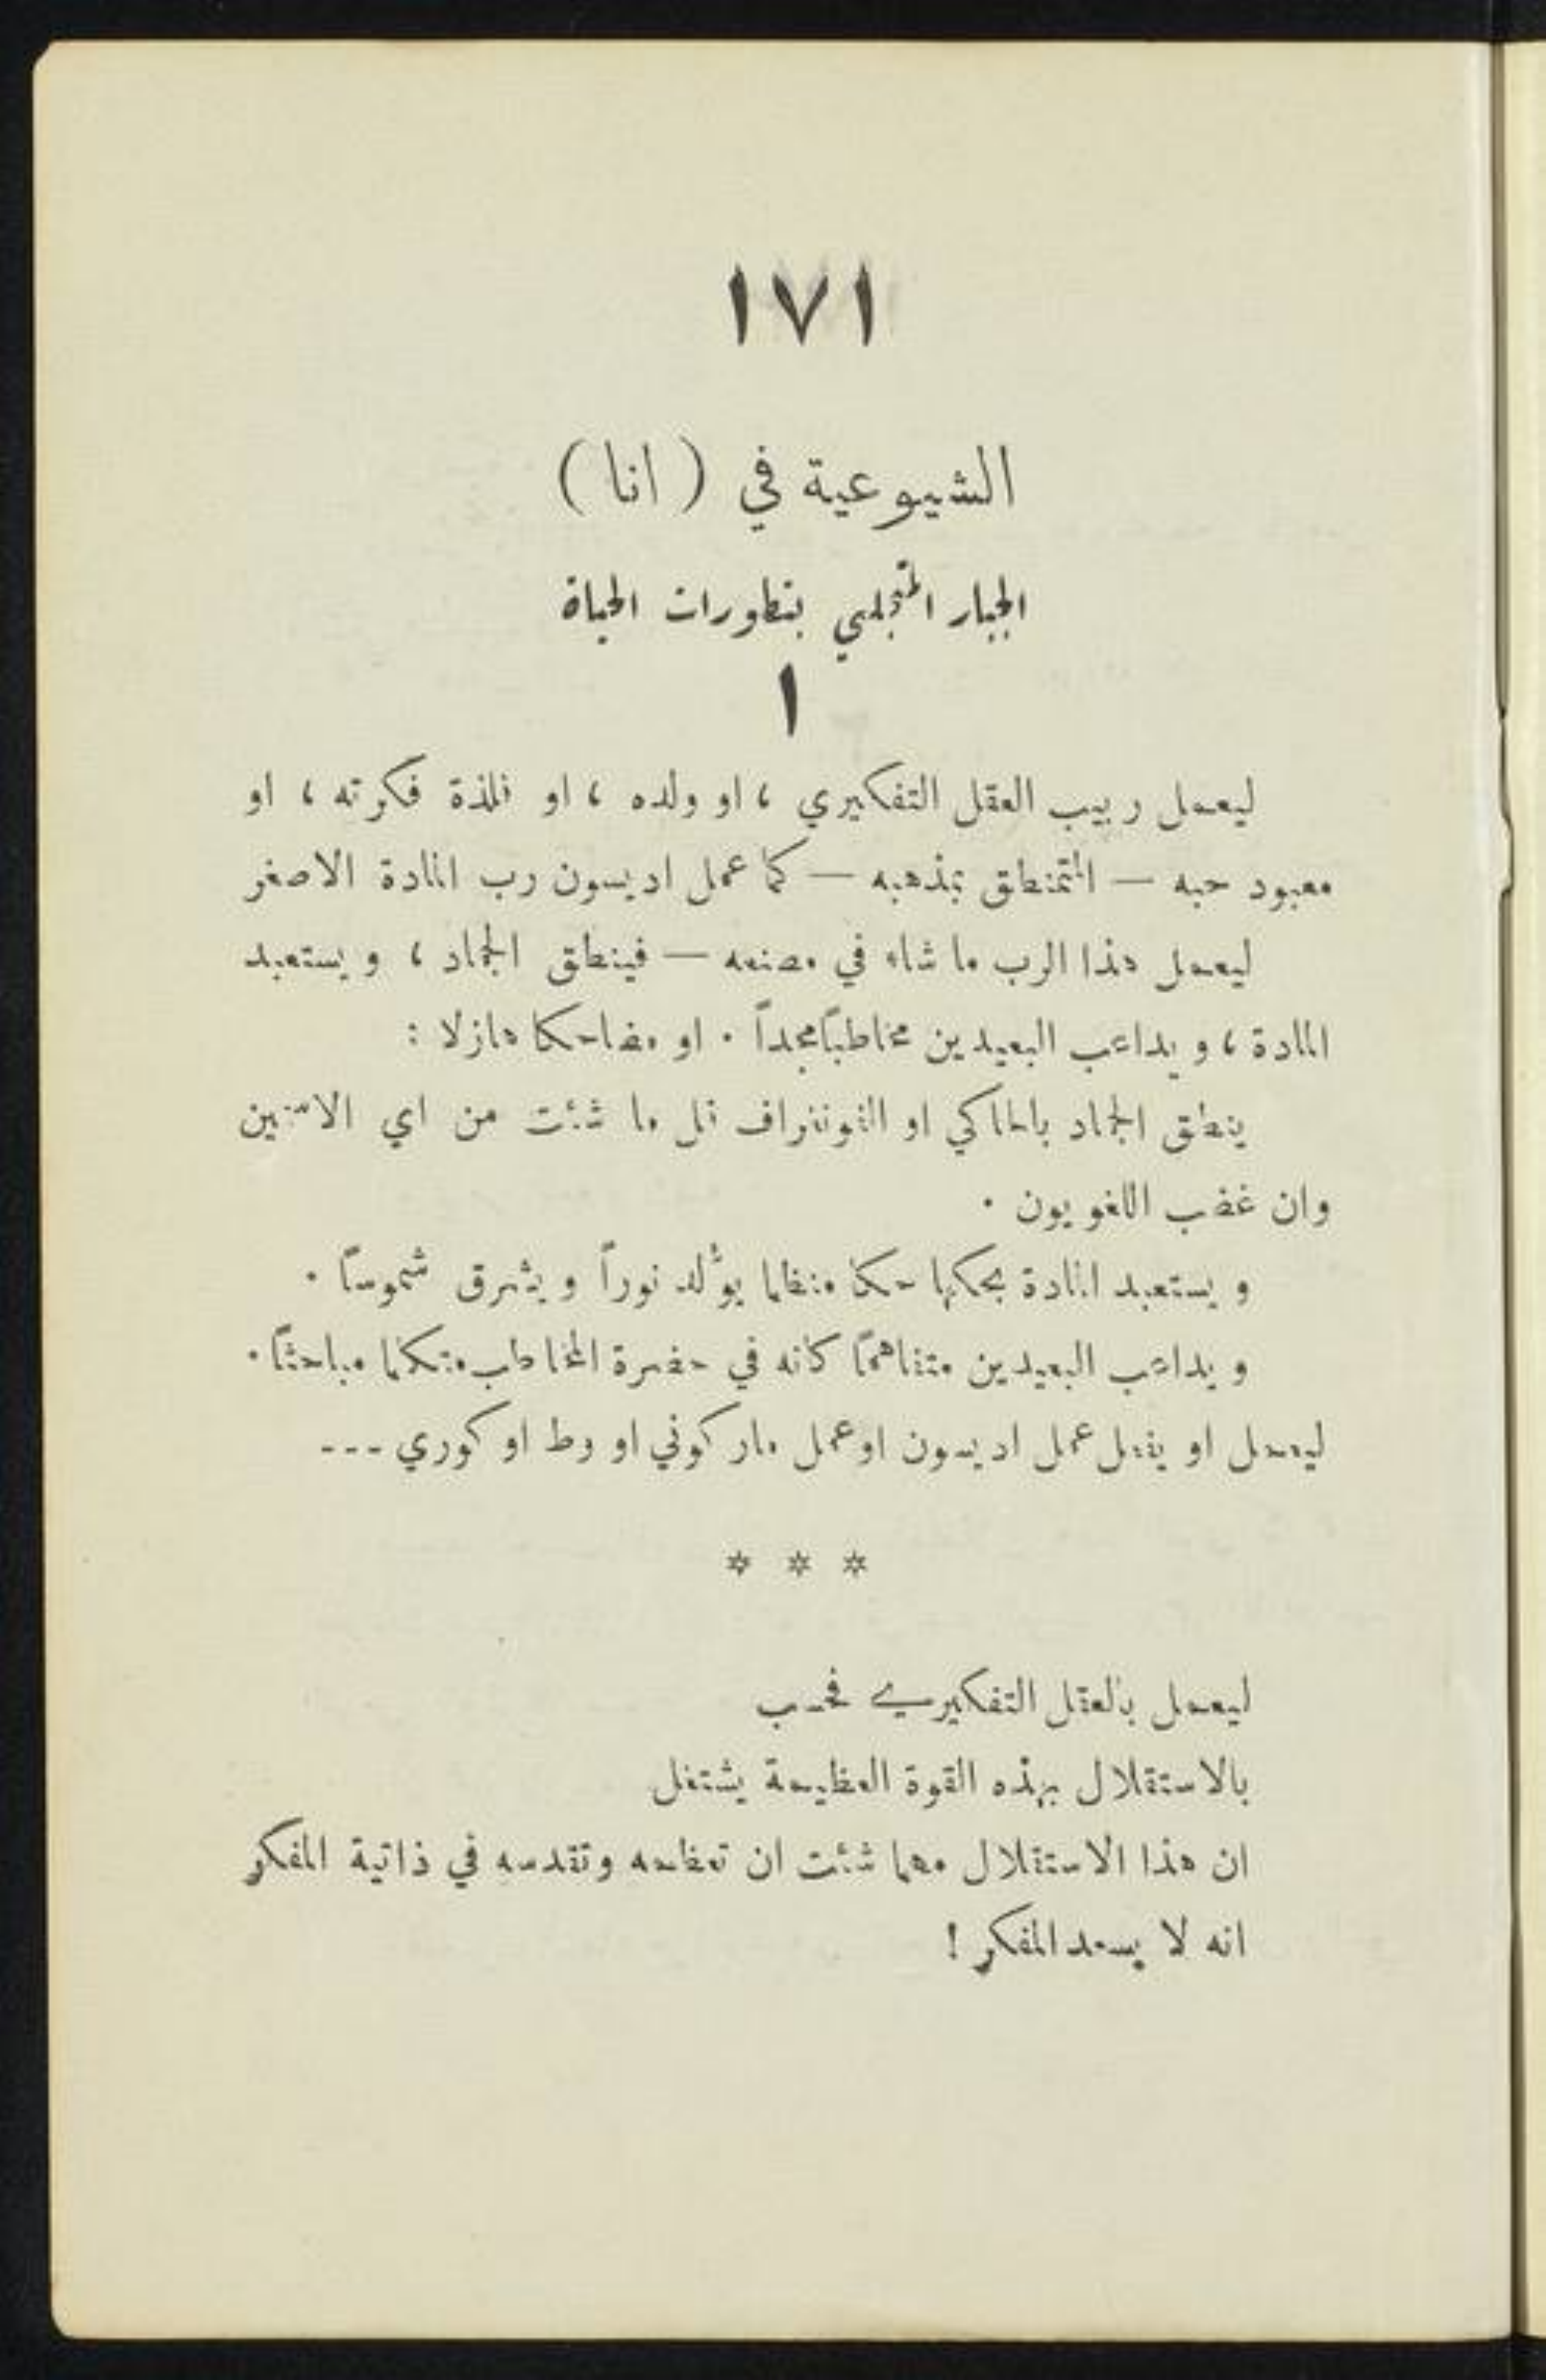 ١٧١
الشيوعية في ( انا )
الجبار المتجلي بتطورات الحياة
١
ليعمل ربيب العقل التفكيري ، او ولده ، او فلذة فكرته ، او
معبود حبه — المتمنطق بمذهبه — كما عمل اديسون رب المادة الاصغر
ليعمل هذا الرب ما شاء في مصنعه — فينطق الجماد ، ويستعبد
المادة ، ويداعب البعيدين مخاطباً مجداً . او مضاحكا هازلا :
ينطق الجماد بالحاكي او الفونغراف قل ما شئت من اي الاسمين
وان غضب اللغويون .
ويستعبد المادة بحكمها حكما منظما يؤلد نوراً ويشرق شموساً .
ويداعب البعيدين متفاهماً كانه في حضرة المخاطب متكلما مباحثاً .
ليعمل او يفعل عمل اديسون او عمل ماركوني او وط او كوري ---
* * *
ليعمل بالعقل التفكيري فحسب
بالاستقلال بهذه القوة العظيمة يشتغل
ان هذا الاستقلال مهما شئت ان تعظمه وتقدسه في ذاتية المفكر
انه لا يسعد المفكر !